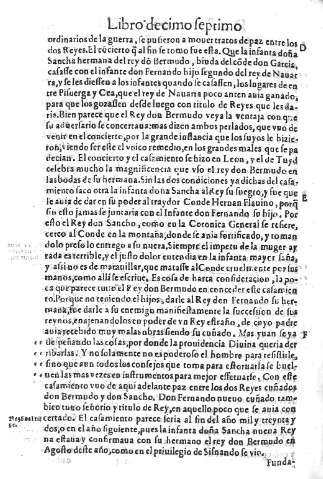 Libro decimo septimo
ordinarios de la guerra, se pusieron a mouer tratos de paz entre los
dos Reyes. El cōcierto q̄ al fin se tomo fue esta. Que la infanta doña
Sancha hermana del rey dō Bermudo, biuda del cōde don Garcia,
casasse con el infante don Fernando hijo segundo del rey de Nauar
ra, y se les diessen a los infantes quando se casassen, los lugares de en
tre Pisuerga y Cea, que el rey de Nauarra poco antes auia ganado,
para que los gozassen desde luego con titulo de Reyes que les da-
ria. Bien parece que el Rey don Bermudo veya la ventaja con que
su aduersario se concertaua: mas dizen ambos perlados, que vuo de
venir en el concierto, por la grande instancia que los suyos le hizie-
ron, viendo ser este el voico remedio, en los grandes males que se pa
decian. El concierto y el casamiento se hizo en Leon, y el de Tuyd
celebra mucho la magnificencia que vso el rey don Bermudo en
las bodas de su hermana. Sin las dos condiciones ya dichas del casa-
miento saco otra la infanta doña Sancha al Rey su suegro, y fue que
le auia de dar en su poder al traydor Conde Hernan Flauino, porq̄
sin esto jamas se juntaria con el Infante don Fernando su hijo. Por
esto el Rey don Sancho, como en la Coronica General se refiere,
cerco al Conde en la montaña, donde se auia fortificado, y toman
dolo preso lo entrego a su nuera. Siempre el impetu de la muger ay
rada es terrible, y el justo dolor entendia en la infanta mayor saña,
y assi no es de marauillar, que matasse al Conde cruelmente por sus
manos, como alli se escriue. Es cosa de harta consideracion, la po-
ca que parece tuuo el Rey don Bermudo en conceder este casamiē
to. Porque no teniendo el hijos, darle al Rey don Fernando su her-
mana, fue darle a su enemigo manifiestamente la succession de sus
reynos, enajenandolos en poder de vn Rey estraño, de cuyo padre
auia recebido muy malas obras siendo su cuñado. Mas yuan se ya
despeñando las cosas, por donde la prouidencia Diuina queria der
ribarlas. Y no solamente no es poderoso el hombre para resistirle,
sino que aun todos los consejos que toma para estoruarla se buel-
uen las mas vezes en instrumentos para mejor effetuarse. Con este
casamiento vuo de aqui adelante paz entre los dos Reyes cuñados
don Bermudo y don Sancho. Don Fernando nueuo cuñado tam-
bien tuuo señorio y titulo de Rey, en aquello poco que se auia con
certado. El casamiento parece seria al fin del año mil y treynta y
dos, o en el año siguiente, pues la infanta doña Sancha nueua Rey
na estaua y confirmaua con su hermano el rey don Bermudo en
Agosto deste año, como en el priuilegio de Sisnando se vio.
Funda-